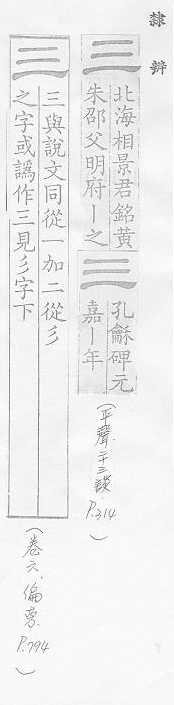 隸辨
三 北海相景君銘黄
朱邵父明府丨之
三 孔龢碑元
嘉丨年
(平聲.二十三談.P.314)
三 三與說文同從一加二從彡
之字或譌作三見彡字下
(卷六.偏旁.P.794)